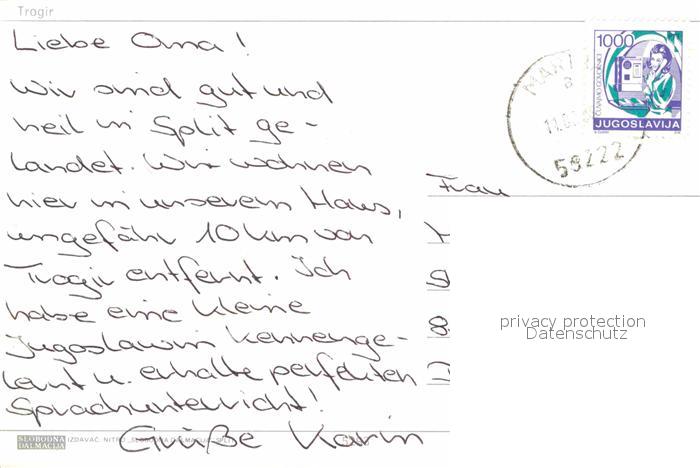 Trogir
Liebe Oma!
Wir sind gut und
heil in Split ge-
landet. Wir wohnen
hier in unserem Haus,
ungefähr 10 km von
Trogir entfernt. Ich
habe eine kleine
Jugoslawin kennenge-
lernt u. erhalte perfekten
Sprachunterricht!
Grüße Karin
SLOBODNA
DALMACIJA
IZDAVAČ: NITRO „SLOBODNA DALMACIJA" SPLIT
1000
JUGOSLAVIJA
58222
Frau
privacy protection
Datenschutz